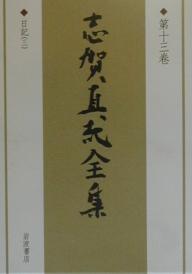 ◆第十三巻
志賀直哉全集
◆日記(三)
岩波書店